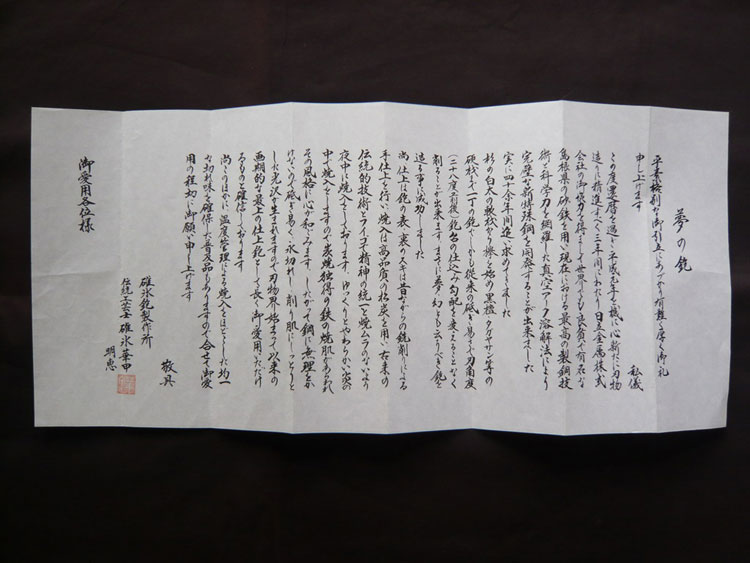 夢の鉋
平素格別なお引立にあづかり有難く厚く御礼
申し上げます
私儀
この度還暦を過ぎ平成元年を機に心新たに刃物
造りに精進すべく三年間にわたり日立金属株式
会社の御協力を得まして世界でも良質で有名な
島根県の砂鉄を用い現在に於ける最高の製鋼技
術と科学力を網羅した真空アーク溶解法により
完璧な新特殊鋼を開発することが出来ました
実に四十余年間追い求めてきました
杉の白太の軟材から堅木始め黒檀タガヤサン等の
硬材まで一丁の鉋でしかも従来の砥ぎ易さで刃角度
(二十八度前後)鉋台の仕込み勾配を変えることなく
削ることが出来ますまさに夢幻とも云うべき鉋を
造る事に成功しました
尚仕上は鉋の表、裏のスキは昔ながらの銑削りによる
手仕上を行い、焼入は高品質の松炭を用い古来の
伝統的技術とライフ精神の統一と焼ムラのないより
夜中に焼入をしております。ゆっくりとやわらかい炎の
中で焼入をしますので炭焼独得の鉄の焼肌があらわれ
その風格に心が和みます。したがって鋼に無理をか
けないので砥ぎ易く、永切れし、削り肌にしっとりと
した光沢が生まれますので刃物界始まって以来の
画期的な最上の仕上鉋として長く御愛用いただけ
るものと確信しております
尚このほかに温度管理による焼入をほどこした均一
な切れ味を確保した普及品もありますので合せて御愛
用の程切に御願い申し上げます
敬具
碓氷鉋製作所
伝統工芸士 碓氷華申
明恵
御愛用各位様